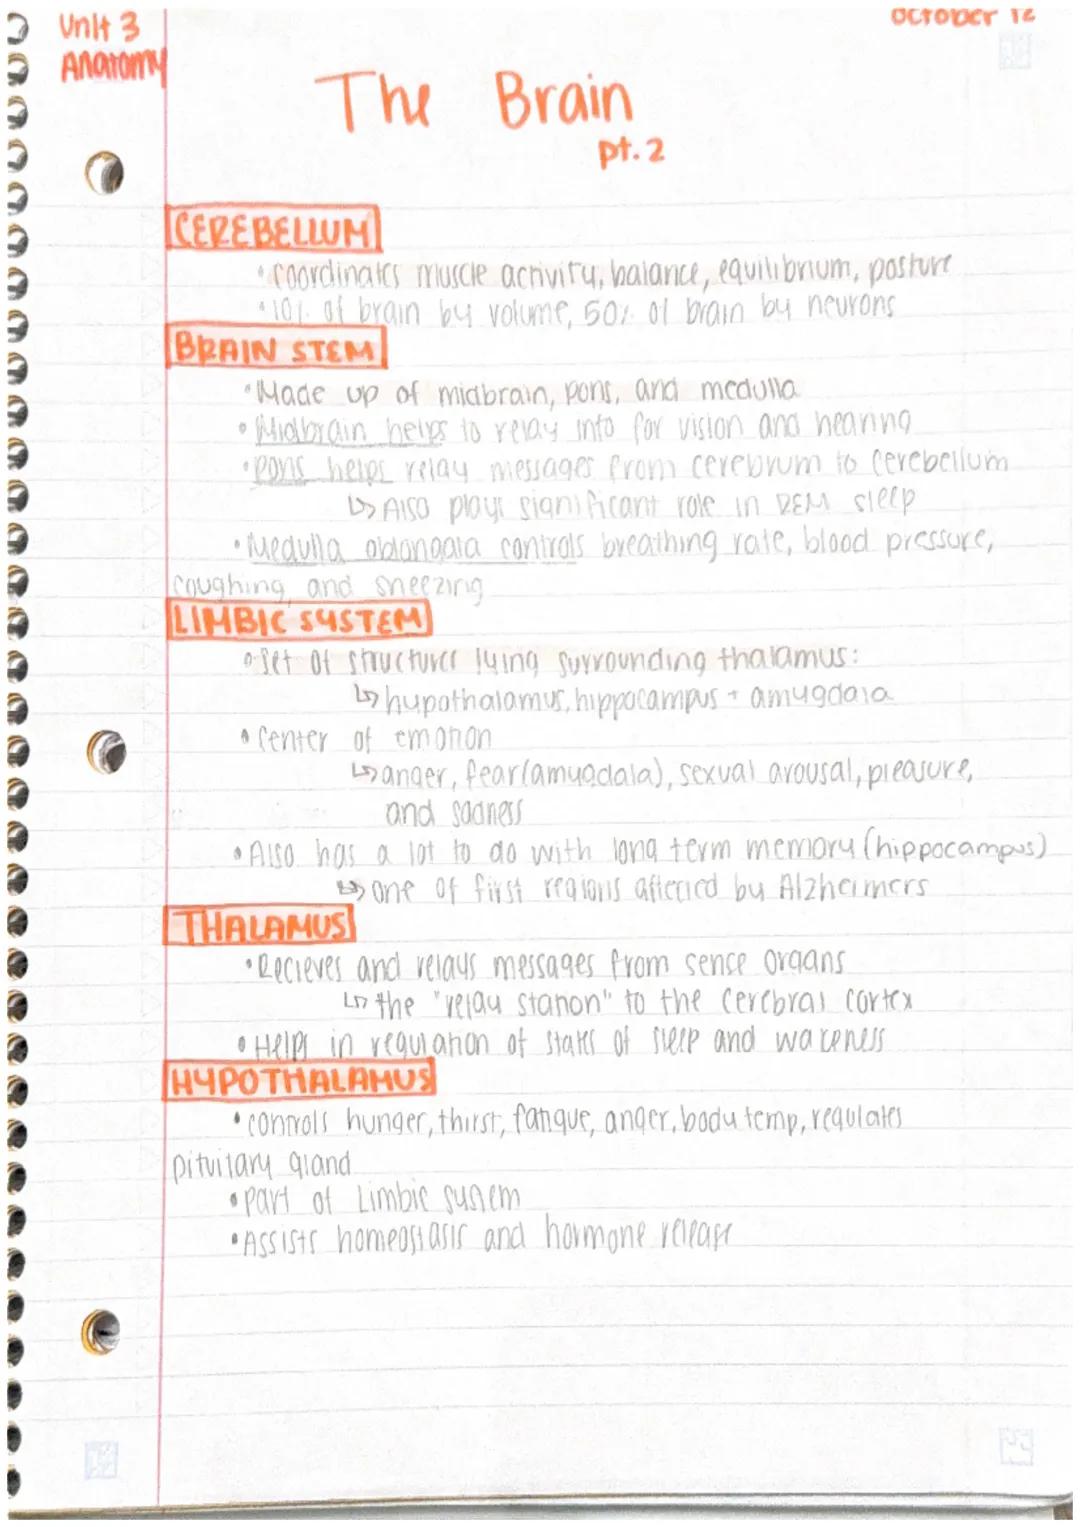 Unit 3
October 12
Anatomy
The Brain
pt. 2
CEREBELLUM
• coordinates muscle activity, balance, equilibrium, posture
• 10% of brain by volume, 50% of brain by neurons
BRAIN STEM
• Made up of midbrain, pons, and medulla
• Midbrain helps to relay info for vision and hearing
• Pons helps relay messages from cerebrum to cerebellum
↳ Also plays significant role in REM sleep
• Medulla oblongata controls breathing rate, blood pressure,
coughing, and sneezing
LIMBIC SYSTEM
• Set of structures lying surrounding thalamus:
↳ hypothalamus, hippocampus + amygdala
• Center of emotion
↳ anger, fear(amygdala), sexual arousal, pleasure,
and sadness
• Also has a lot to do with long term memory (hippocampus)
↳ one of first regions affected by Alzheimers
THALAMUS
• Recieves and relays messages from sense organs
↳ the "relay station" to the cerebral cortex
• Helps in regulation of states of sleep and wakeness
HYPOTHALAMUS
• controls hunger, thirst, fatigue, anger, body temp, regulates
pituitary gland
• part of Limbic system
• Assists homeostasis and hormone release